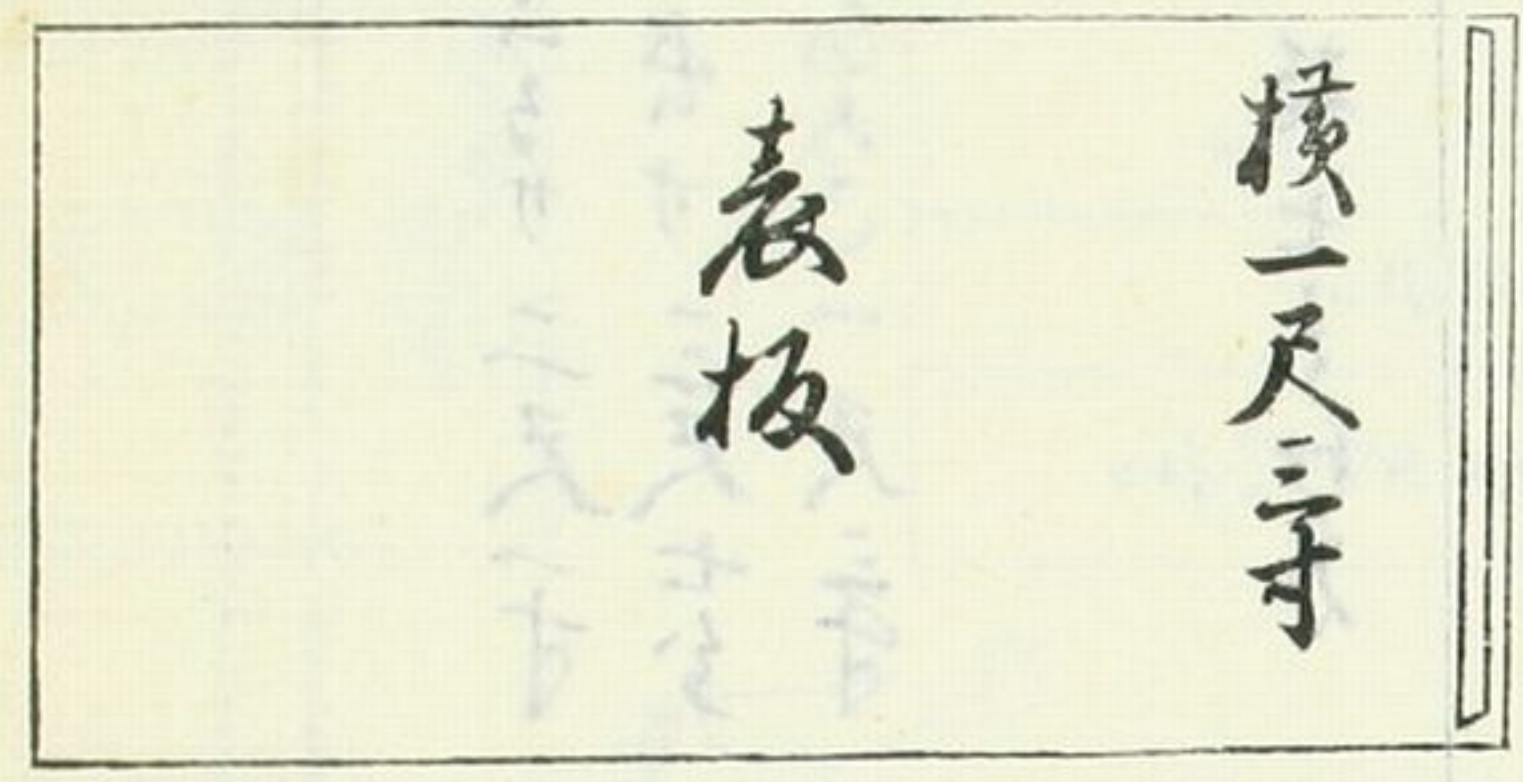 横一尺三寸
表板